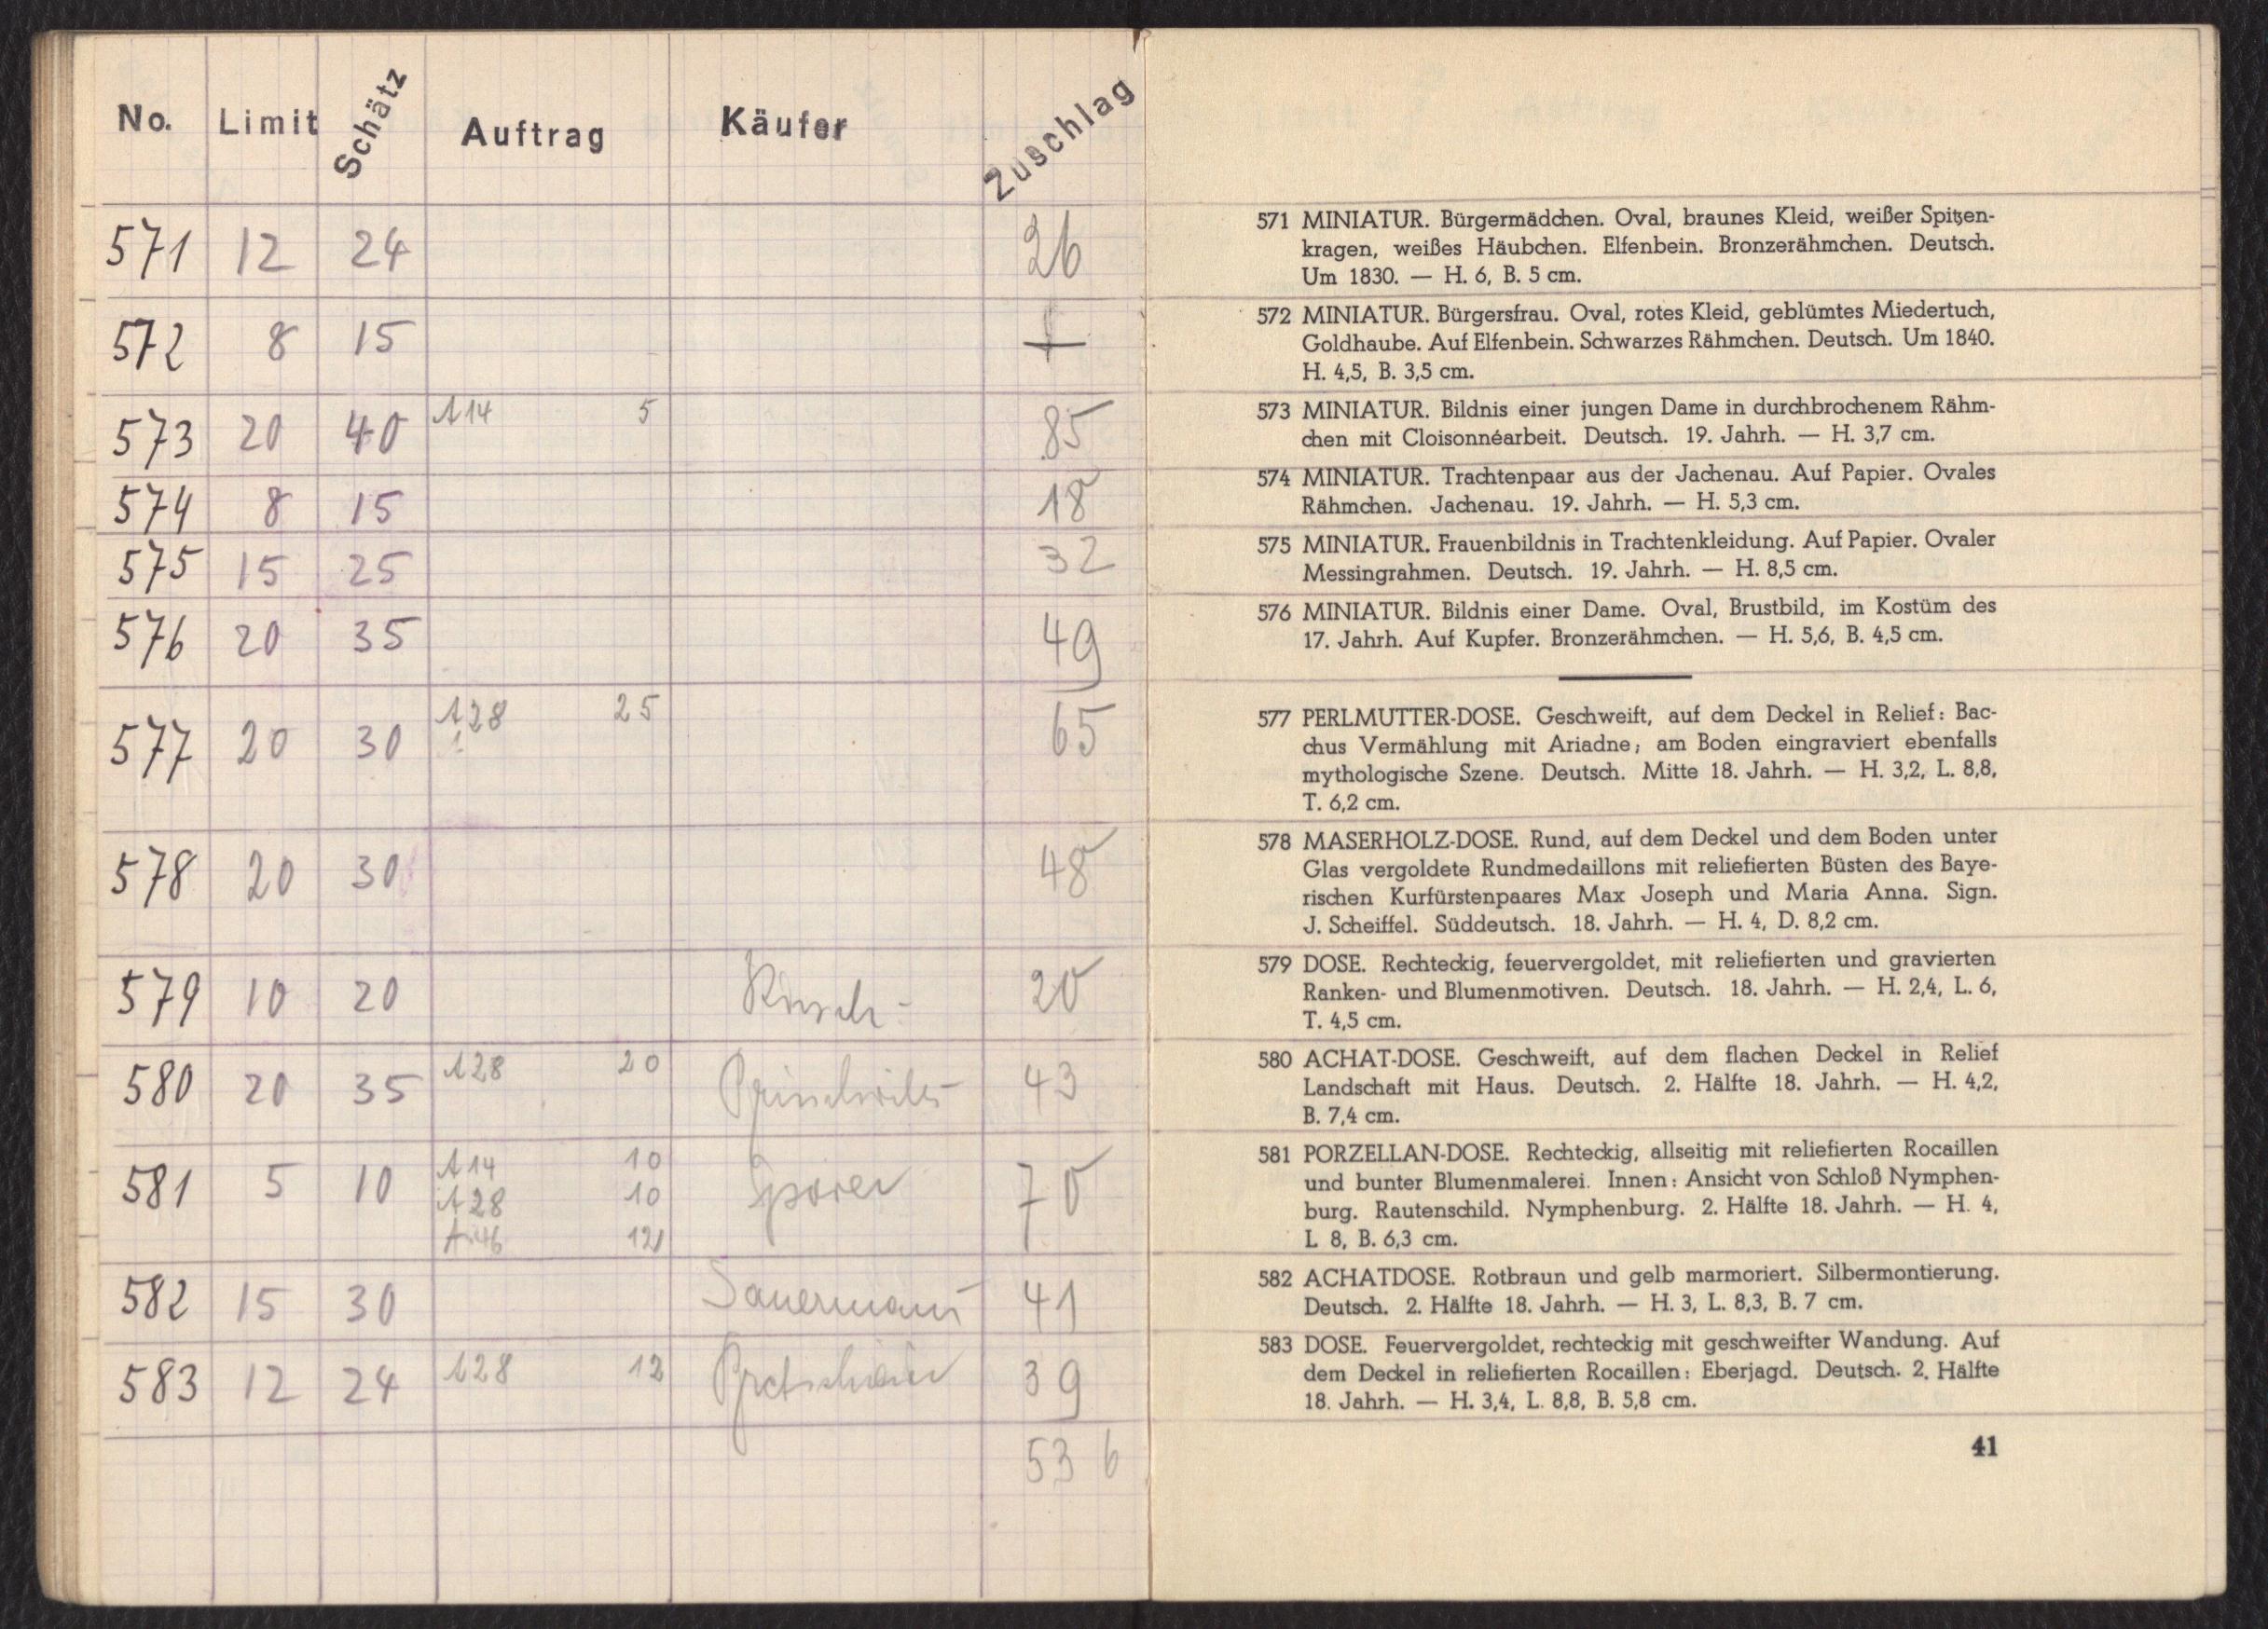 No. Limit Schätz Auftrag Käufer Zuschlag
571 12 24 26
572 8 15 +
573 20 40 A14 5 85
574 8 15 18
575 15 25 32
576 20 35 49
577 20 30 A28 25 65
578 20 30 48
579 10 20 20
580 20 35 A28 20 43
581 5 10 A14 10 Sporer 70
A28 10
A46 12
582 15 30 Sauermann 41
583 12 24 A28 12 39
536
571 MINIATUR. Bürgermädchen. Oval, braunes Kleid, weißer Spitzen-
kragen, weißes Häubchen. Elfenbein. Bronzerähmchen. Deutsch.
Um 1830. — H. 6, B. 5 cm.
572 MINIATUR. Bürgersfrau. Oval, rotes Kleid, geblümtes Miedertuch,
Goldhaube. Auf Elfenbein. Schwarzes Rähmchen. Deutsch. Um 1840.
H. 4,5, B. 3,5 cm.
573 MINIATUR. Bildnis einer jungen Dame in durchbrochenem Rähm-
chen mit Cloisonnéarbeit. Deutsch. 19. Jahrh. — H. 3,7 cm.
574 MINIATUR. Trachtenpaar aus der Jachenau. Auf Papier. Ovales
Rähmchen. Jachenau. 19. Jahrh. — H. 5,3 cm.
575 MINIATUR. Frauenbildnis in Trachtenkleidung. Auf Papier. Ovaler
Messingrahmen. Deutsch. 19. Jahrh. — H. 8,5 cm.
576 MINIATUR. Bildnis einer Dame. Oval, Brustbild, im Kostüm des
17. Jahrh. Auf Kupfer. Bronzerähmchen. — H. 5,6, B. 4,5 cm.
577 PERLMUTTER-DOSE. Geschweift, auf dem Deckel in Relief: Bac-
chus Vermählung mit Ariadne; am Boden eingraviert ebenfalls
mythologische Szene. Deutsch. Mitte 18. Jahrh. — H. 3,2, L. 8,8,
T. 6,2 cm.
578 MASERHOLZ-DOSE. Rund, auf dem Deckel und dem Boden unter
Glas vergoldete Rundmedaillons mit reliefierten Büsten des Baye-
rischen Kurfürstenpaares Max Joseph und Maria Anna. Sign.
J. Scheiffel. Süddeutsch. 18. Jahrh. — H. 4, D. 8,2 cm.
579 DOSE. Rechteckig, feuervergoldet, mit reliefierten und gravierten
Ranken- und Blumenmotiven. Deutsch. 18. Jahrh. — H. 2,4, L. 6,
T. 4,5 cm.
580 ACHAT-DOSE. Geschweift, auf dem flachen Deckel in Relief
Landschaft mit Haus. Deutsch. 2. Hälfte 18. Jahrh. — H. 4,2,
B. 7,4 cm.
581 PORZELLAN-DOSE. Rechteckig, allseitig mit reliefierten Rocaillen
und bunter Blumenmalerei. Innen: Ansicht von Schloß Nymphen-
burg. Rautenschild. Nymphenburg. 2. Hälfte 18. Jahrh. — H. 4,
L 8, B. 6,3 cm.
582 ACHATDOSE. Rotbraun und gelb marmoriert. Silbermontierung.
Deutsch. 2. Hälfte 18. Jahrh. — H. 3, L. 8,3, B. 7 cm.
583 DOSE. Feuervergoldet, rechteckig mit geschweifter Wandung. Auf
dem Deckel in reliefierten Rocaillen: Eberjagd. Deutsch. 2. Hälfte
18. Jahrh. — H. 3,4, L. 8,8, B. 5,8 cm.
41